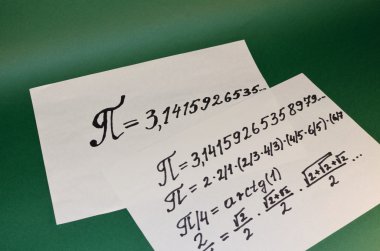 π = 3,1415926535...
π = 3,14159265358979...
π = 2·2/1·(2/3·4/3)·(4/5·6/5)·(6/7
π/4 = arctg(1)
2/ = √2/2 · √2+√2/2 · √2+√2+√2/2